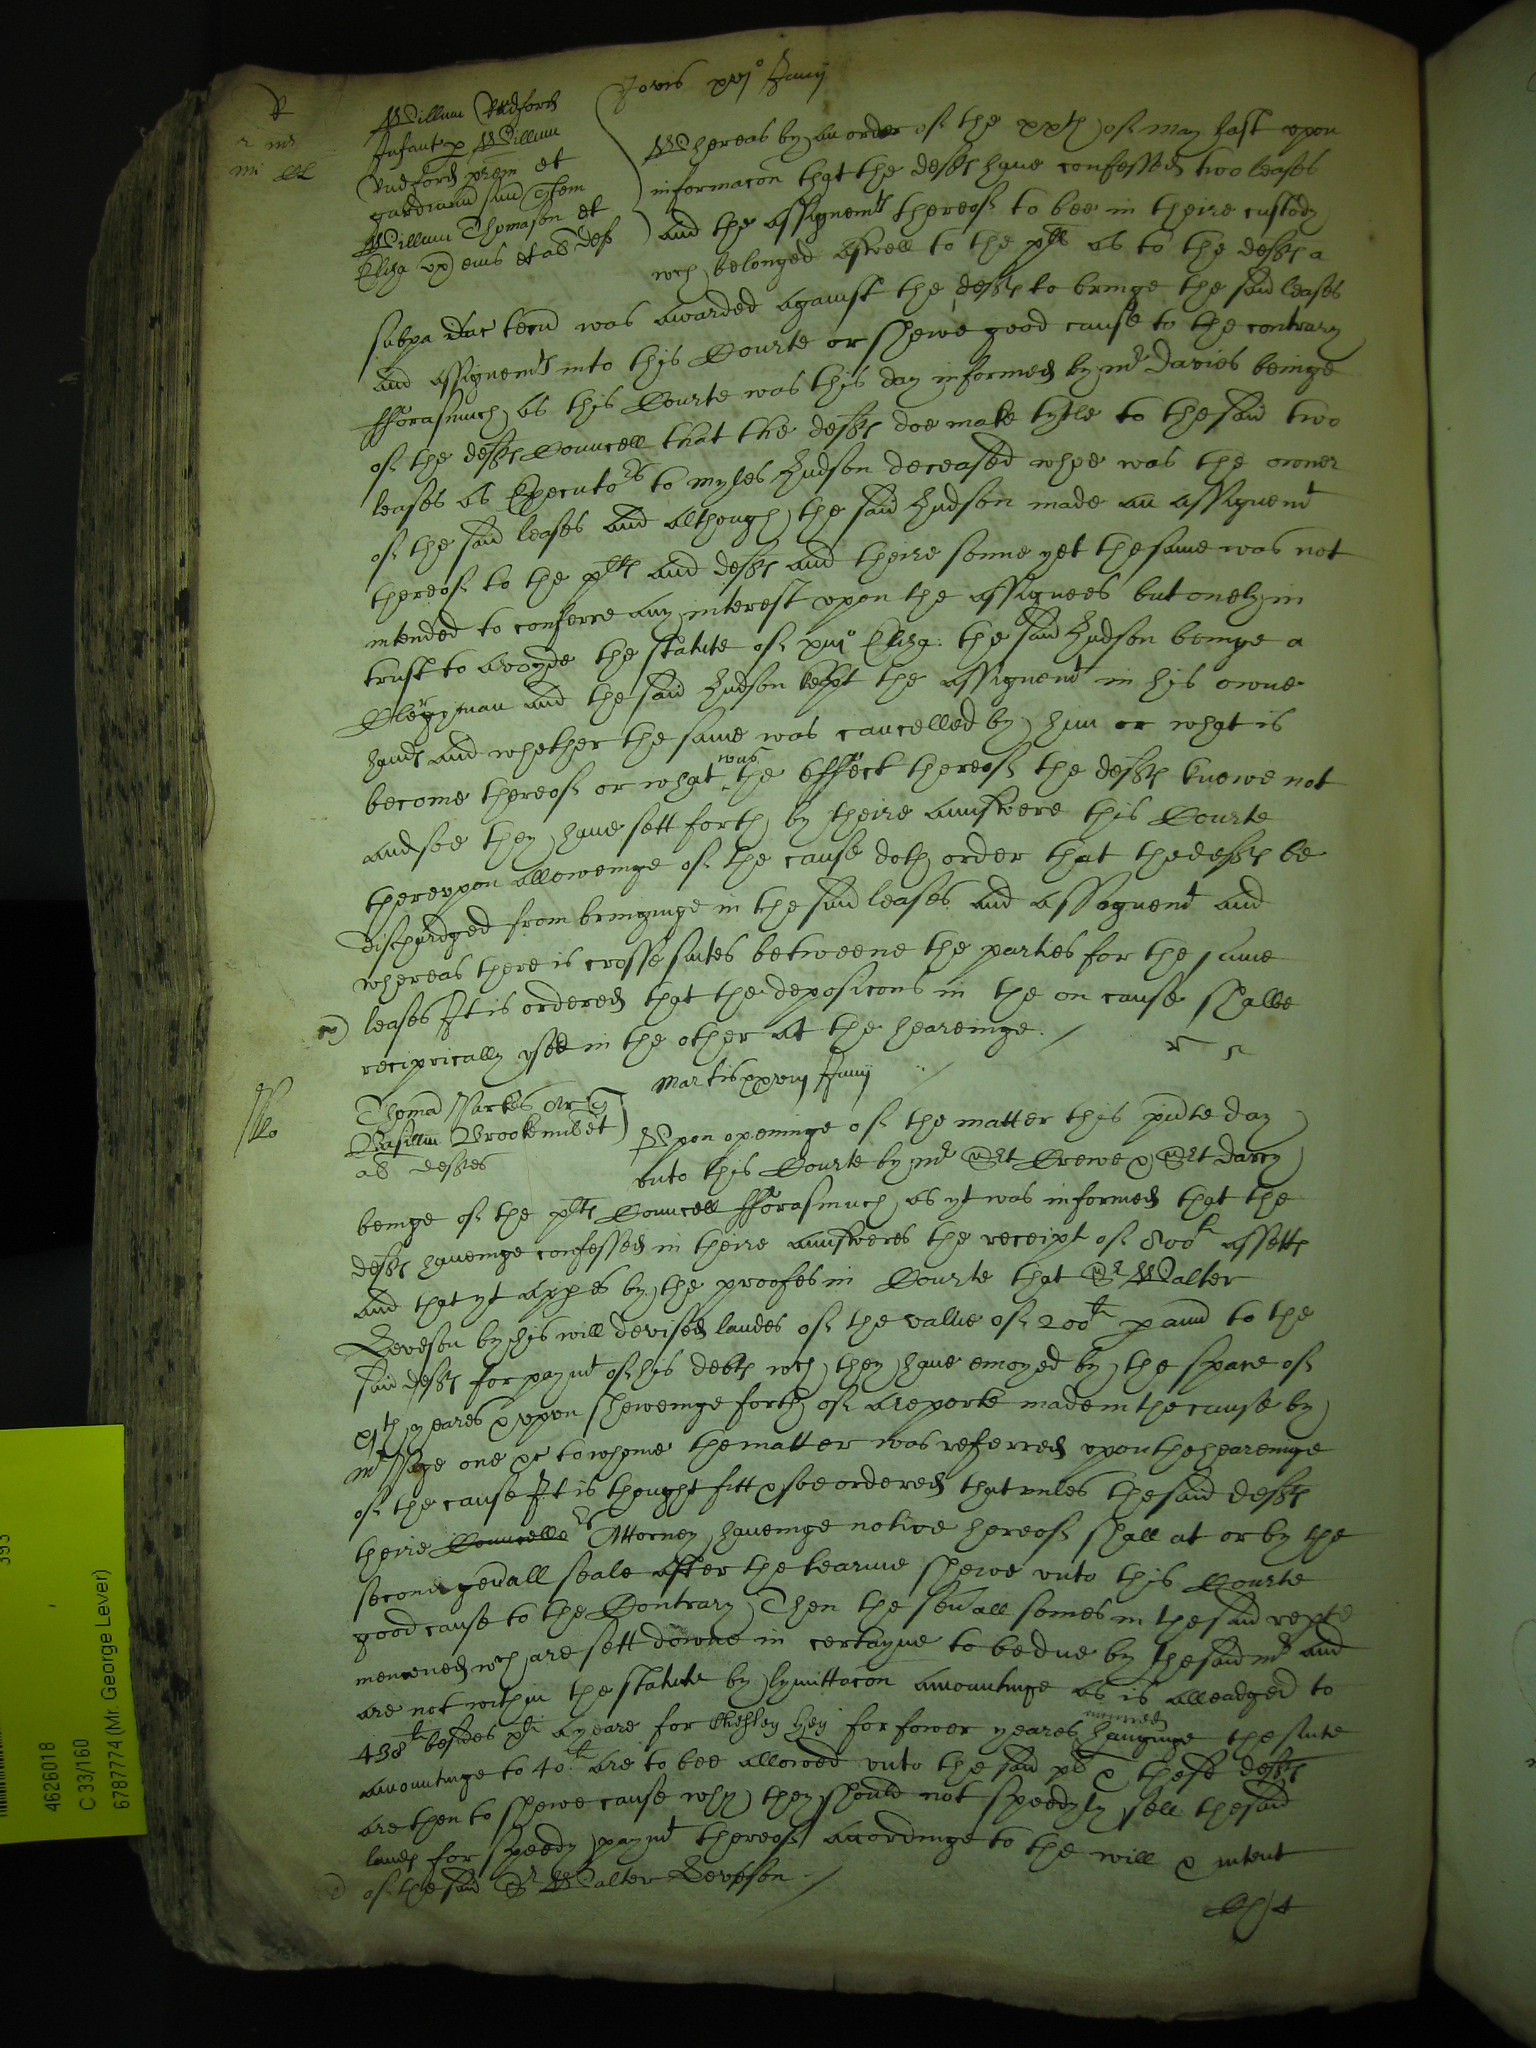 Jovis xvjo Junij
Willim Rudford
Infant p Willim
Rudford prem et
gardianu suu quem
Willim Thomason et
Eliza ux eius et al def
Whereas by an order of the xxth of May last upon
informacon that the deftes have confessed two leases
and the assignemts thereof to bee in theire custody
wch belonged aswell to the plts as to the deftes a
subpa duc tecu was awarded against the deftes to bringe the said leases
and assignemts into this Courte or shewe good cause to the contrary
fforasmuch as this Courte was this day informed by mr Davies beinge
of the deftes Councell that the deftes doe make tytle to the said two
leases as Executors to myles Judson deceased whoe was the owner
of the said leases and although the said Judson made an assignemt
thereof to the plts and deftes and theire sonne yet the same was not
intended to conferre any interest upon the assignees but onely in
trust to avoyde the statute of xiijo Eliza: the said Judson beinge a
Clergyman and the said Judson kept the assignemt in his owne
hands and whether the same was cancelled by him or what is
become thereof or what was the effect thereof the deftes knowe not
and soe they have sett forth by theire aunswere this Courte
thereupon alloweinge of the cause doth order that the deftes be
dischardged from bringinge in the said leases and assignemt and
whereas there is crosse suites betweene the parties for the same
leases It is ordered that the deposicons in the on cause shalbe
reciprically used in the other at the hearinge.
Martis xxviij Junij
Thoma Parkes Ar q
Vasillm Brooke milit et
al deftes
Upon openinge of the matter this pnte day
unto this Courte by mr Sergt Crewe & Sergt Darcy
beinge of the plts Councell fforasmuch as yt was informed that the
deftes haveinge confessed in theire aunsweres the receipt of 800li assetts
and that yt appes by the proofes in Courte that Sr Walter
Leveson by his will devised landes of the value of 200li p ann to the
said deftes for paymt of his debts wch they have enioyed by the space of
yeares & upon sheweinge forth of a reporte made in the cause by
mr Page one &c to whome the matter was referred upon the heareinge
of the cause It is thought fitt & soe ordered that unles the said deftes
theire Councelle Attorney haveinge notice hereof shall at or by the
second genall seale after the tearme shewe unto this Courte
good cause to the Contrary Then the sevall somes in the said report
menconed wch are sett downe in certayne to be due by the said mr and
are not within the statute by lymittacon amountinge as is alleadged to
438li besides xli a yeare for Chesley Hey for fower yeares hanginge the suite
amountinge to 40li are to bee allowed unto the said pl & these deftes
are then to shewe cause why they should not speedyly sell the said
lands for speedy paymt thereof accordinge to the will & intent
of the said Sr Walter Leveson
393
4626018
C 33/160
6787774 (Mr. George Lever)